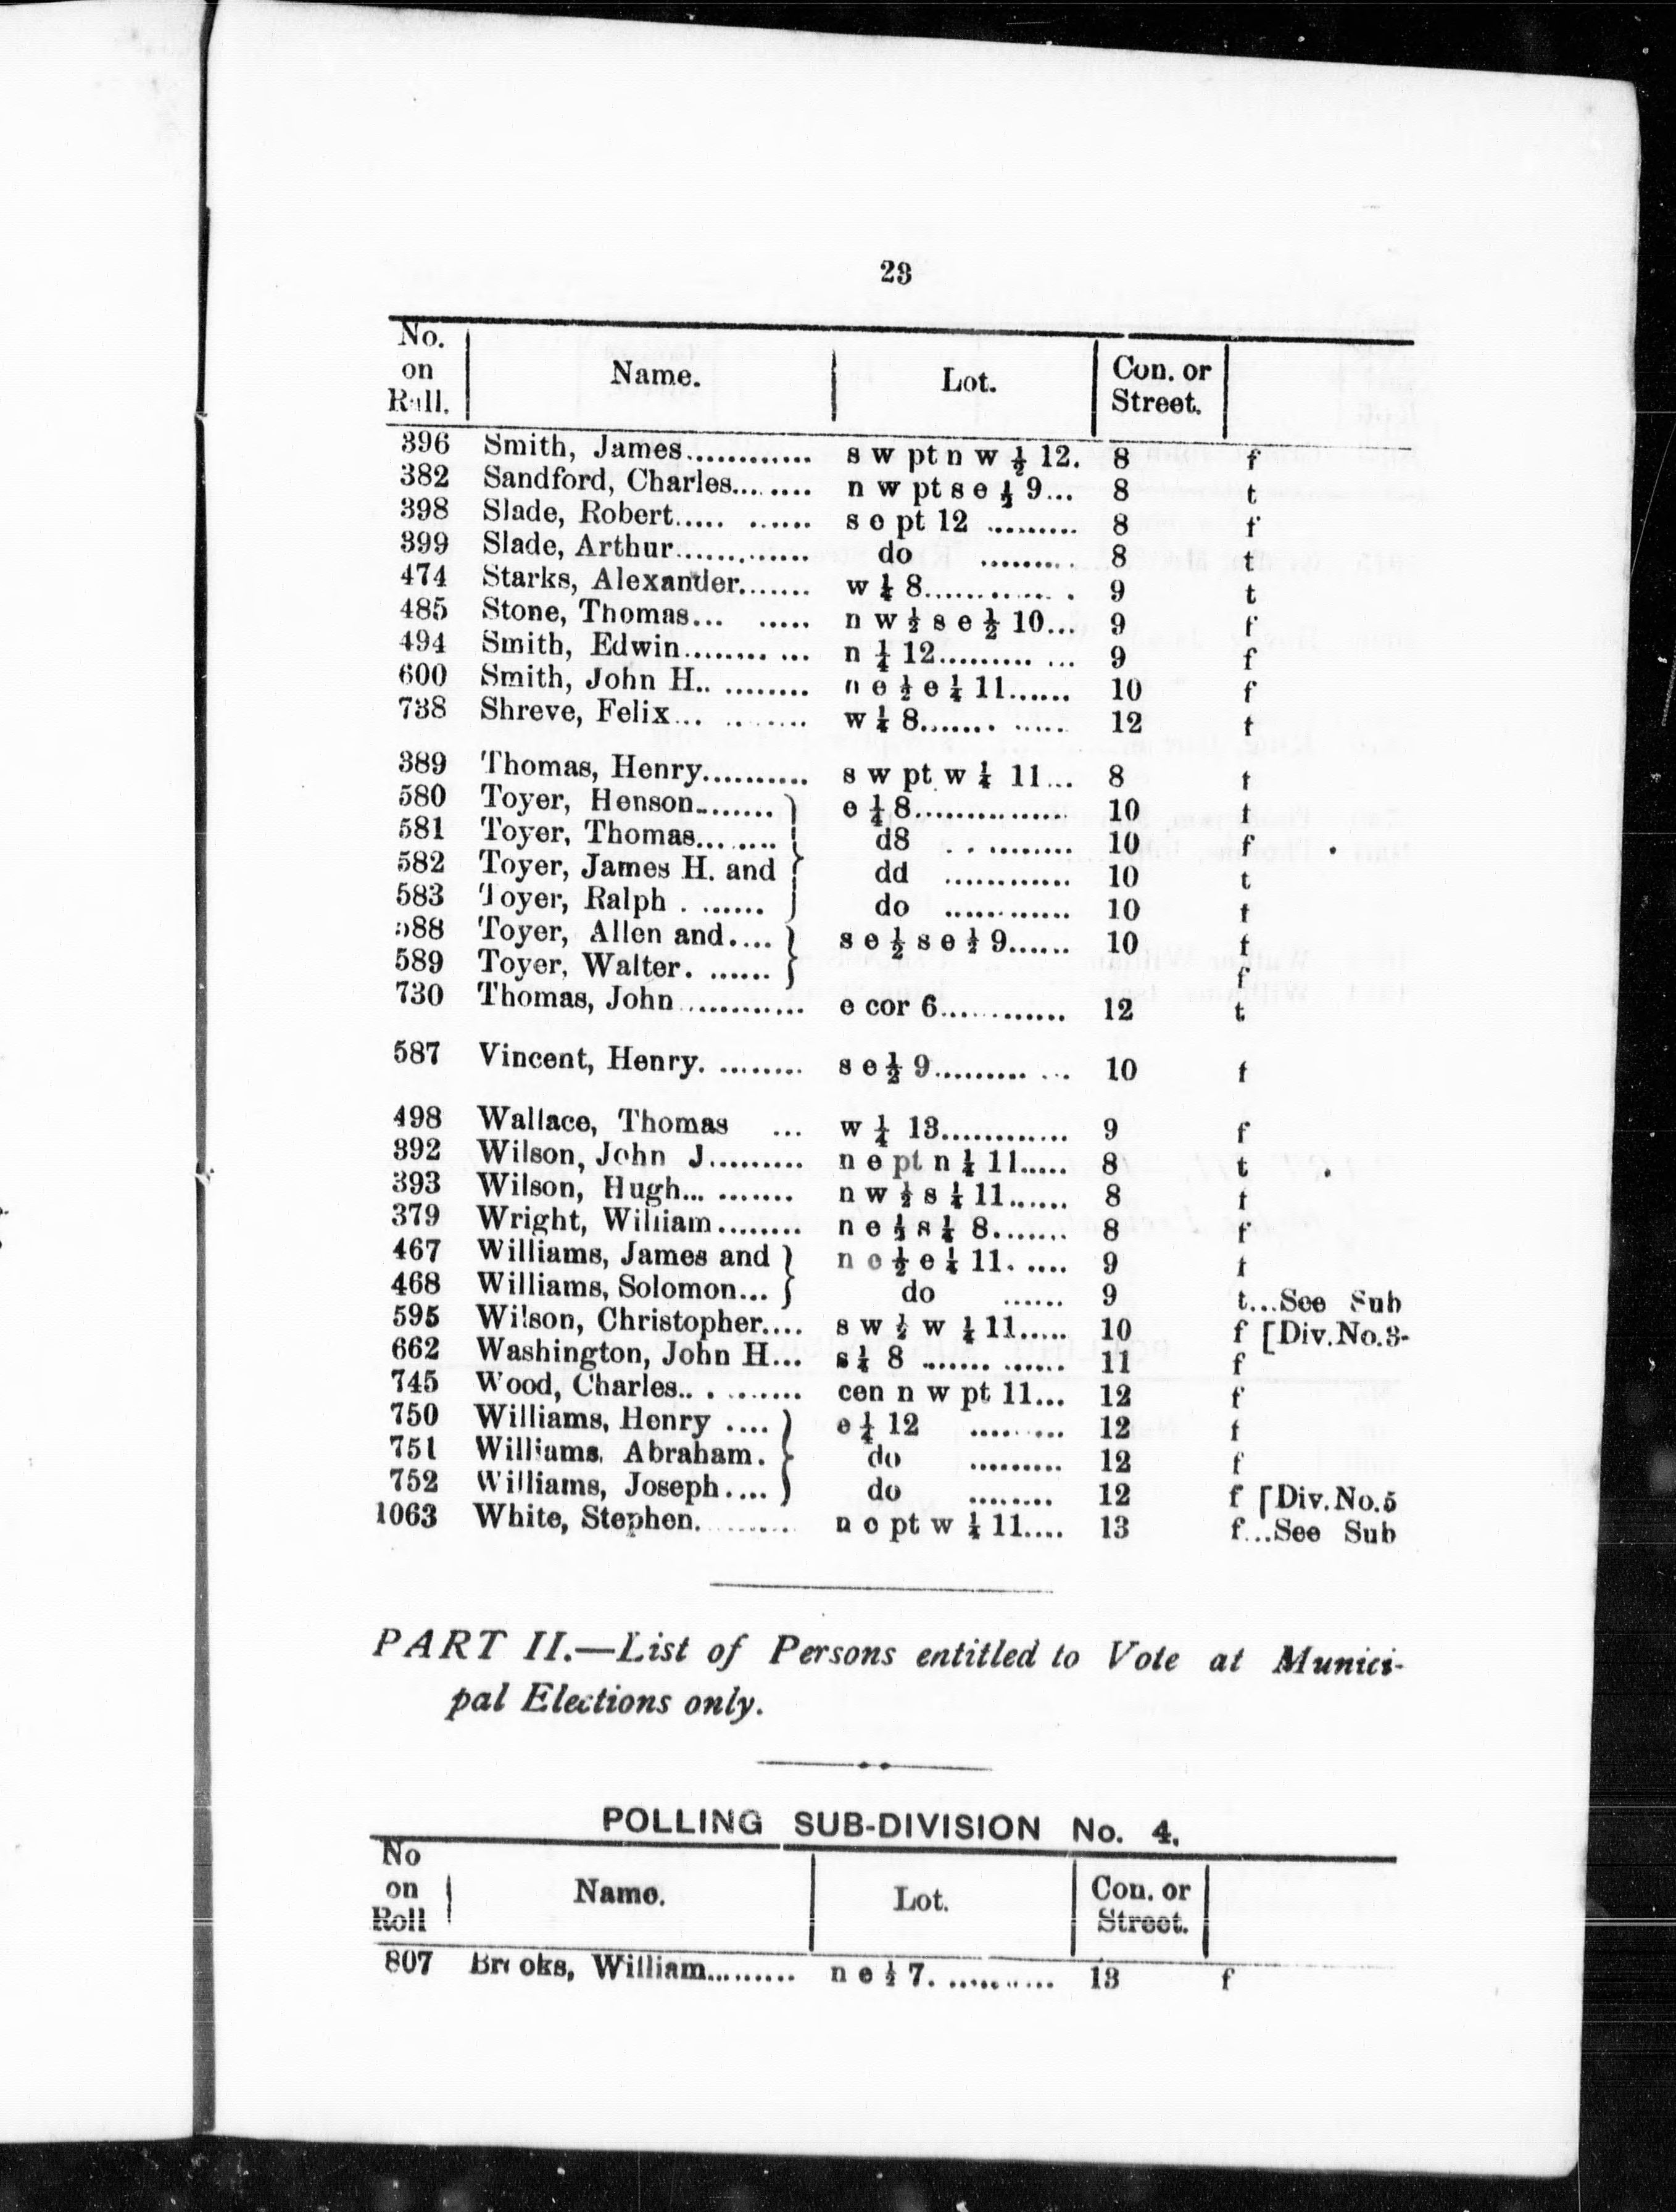 23
No. on Roll. Name. Lot. Con. or Street.
396 Smith, James............ s w pt n w ½ 12. 8 f
382 Sandford, Charles........ n w pt s e ½ 9... 8 t
398 Slade, Robert..... ...... s e pt 12 ......... 8 f
399 Slade, Arthur............. do ......... 8 t
474 Starks, Alexander....... w ¼ 8............. . 9 t
485 Stone, Thomas... ..... n w ½ s e ½ 10... 9 f
494 Smith, Edwin......... ... n ¼ 12......... ... 9 f
600 Smith, John H.. ........ n e ½ e ¼ 11...... 10 f
738 Shreve, Felix... ........ w ¼ 8....... ..... 12 t
389 Thomas, Henry.......... s w pt w ¼ 11... 8 t
580 Toyer, Henson........ } e ¼ 8............... 10 t
581 Toyer, Thomas........ } d8 . . ......... 10 f
582 Toyer, James H. and } dd ............ 10 t
583 Toyer, Ralph . ...... } do ............ 10 f
588 Toyer, Allen and.... } s e ½ s e ½ 9...... 10 f
589 Toyer, Walter. ...... } f
730 Thomas, John............ e cor 6............ 12 t
587 Vincent, Henry. ........ s e ½ 9......... ... 10 f
498 Wallace, Thomas ... w ¼ 13............ 9 f
392 Wilson, John J......... n e pt n ¼ 11..... 8 t
393 Wilson, Hugh... ....... n w ½ s ¼ 11...... 8 f
379 Wright, William........ n e ½ s ¼ 8....... 8 f
467 Williams, James and } n e ½ e ¼ 11. .... 9 f
468 Williams, Solomon... } do ...... 9 t...See Sub
595 Wilson, Christopher.... s w ½ w ¼ 11..... 10 f [Div. No. 3-
662 Washington, John H... s ¼ 8 ....... ...... 11 f
745 Wood, Charles.. . ........ cen n w pt 11... 12 f
750 Williams, Henry .... } e ¼ 12 ......... 12 f
751 Williams, Abraham. } do ......... 12 f
752 Williams, Joseph.... } do ........ 12 f [Div. No. 5
1063 White, Stephen......... n e pt w ¼ 11.... 13 f...See Sub
PART II.—List of Persons entitled to Vote at Munici-
pal Elections only.
POLLING SUB-DIVISION No. 4.
No on Roll Name. Lot. Con. or Street.
807 Brooks, William......... n e ½ 7. .......... 13 f